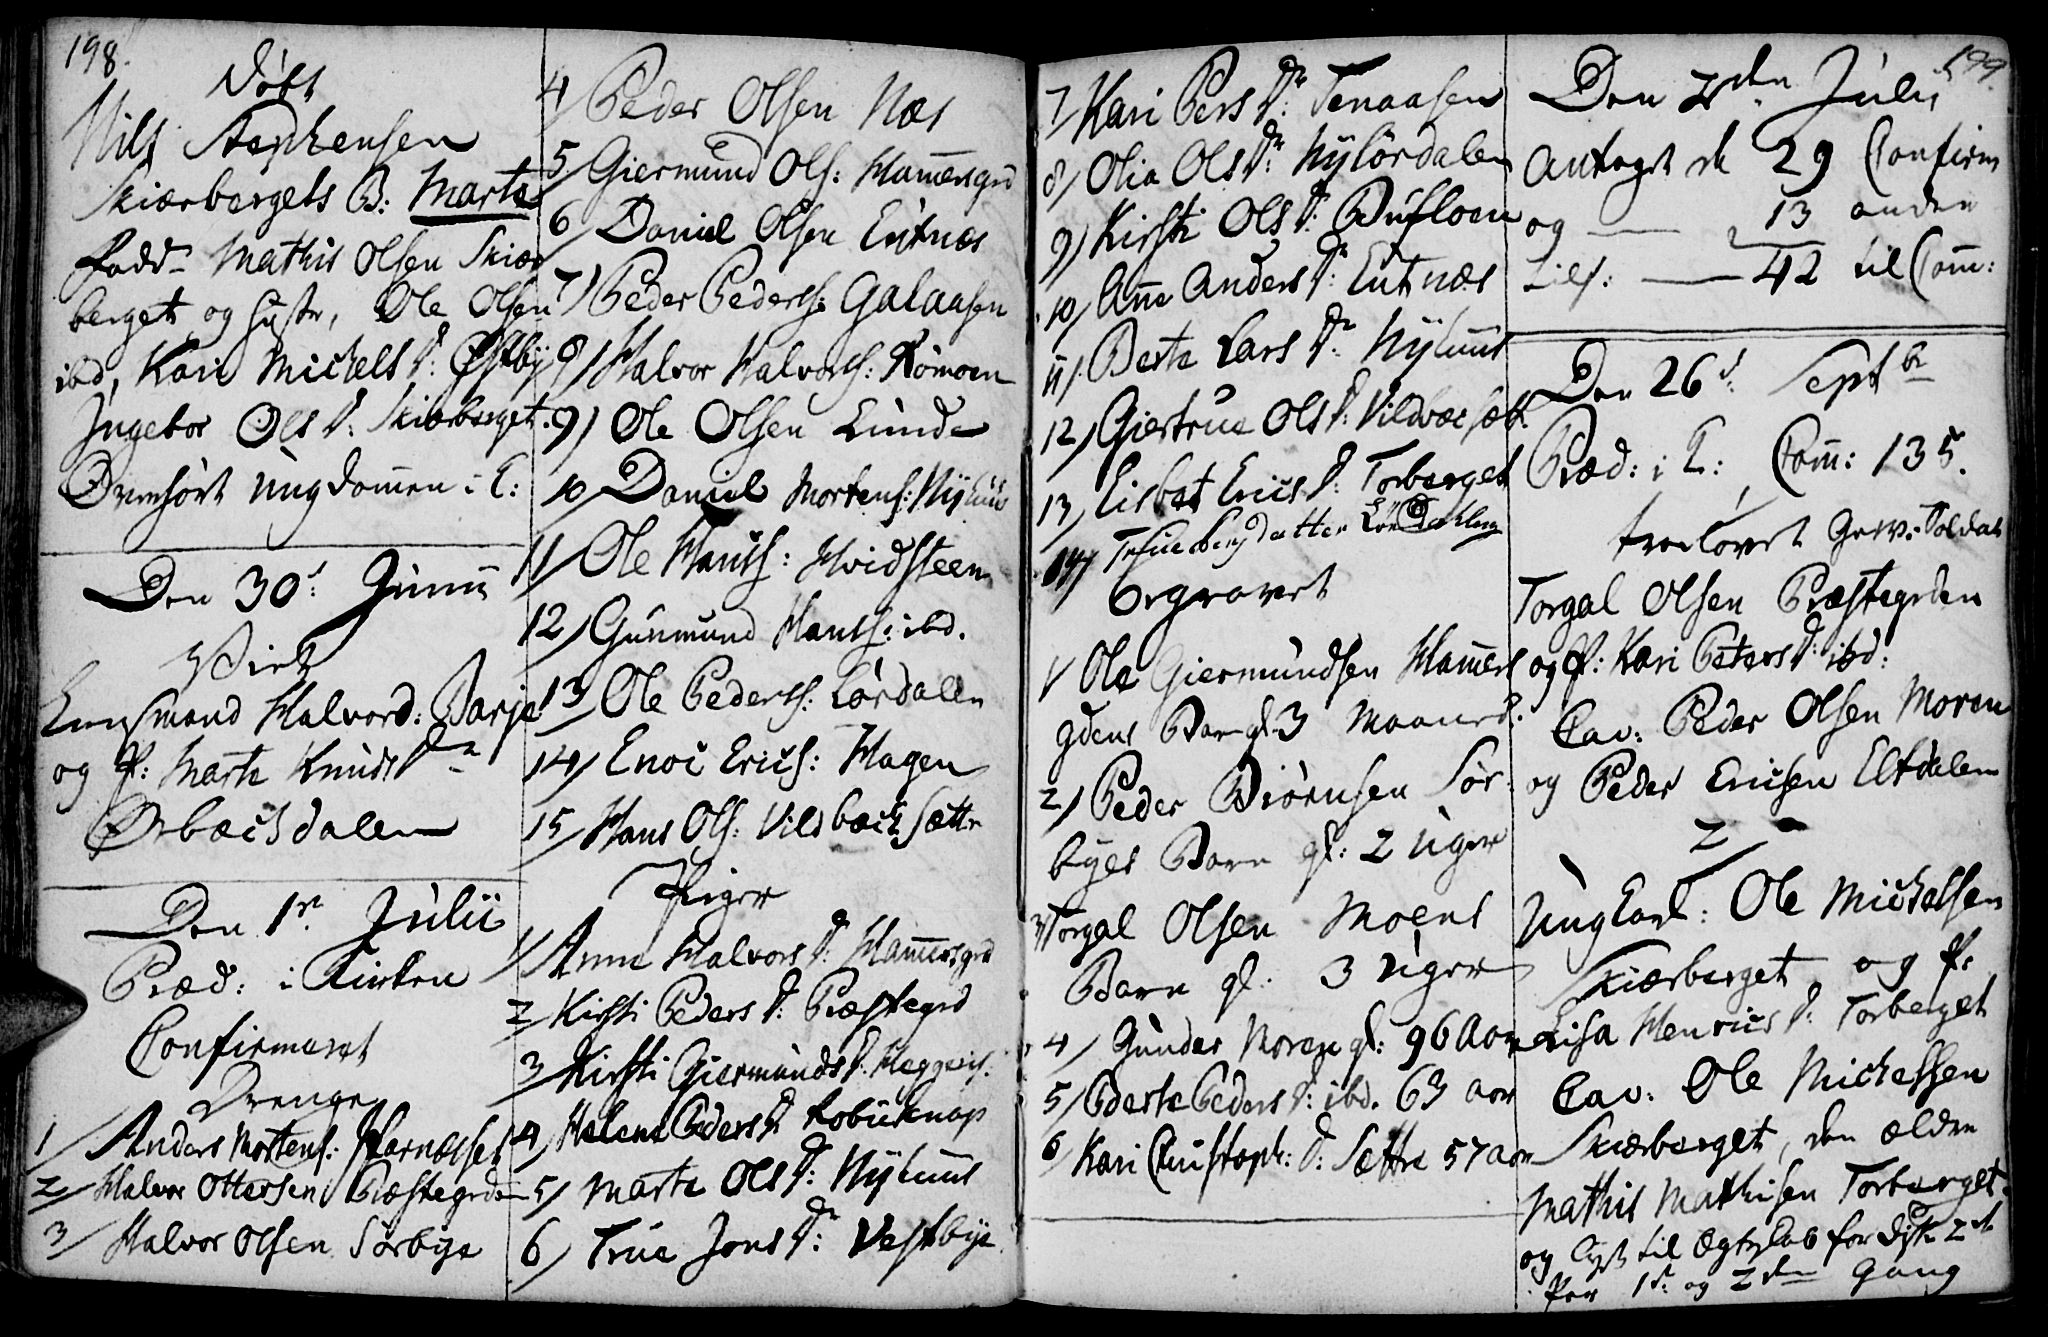 198.
Døbt
Nils Stephensen
Skiærbergets B: Marte
Fadd. Mathis Olsen Skiær
berget og hustr, Ole Olsen
ibd, Kari Michels D: Østby
Ingebor Ols D: Skiærberget.
Overhørt Ungdomen i K:
Den 30t Junii
Viet
Halvord:
og P: Marte Knuds D
Ørbæchsdalen
Den 1te Julii
Præd: i Kirken
Confirmeret
Drenge
1/ Anders Mortens:
2/ Halvor Ottersen Præstegrden
3/ Halvor Olsen Sørbye
4/ Peder Olsen Næs
5/ Giermund Ols: Hamersgrd
6/ Daniel Olsen Eutnæs
7/ Peder Peders: Galaasen
8/ Halvor Halvors: Rømoen
9/ Ole Olsen Lunde
10/ Daniel Mortens: Nyhuus
11/ Ole Hans: Hvidsteen
12/ Gunmund Hans: ibd.
13/ Ole Peders: Lørdalen
14/ Enoc Erics: Hagen
15/ Hans Ols: Vildbechsætte
Piger
1/ Anne Halvors D: Hamersgrd
2/ Kirsti Peders D: Præstegrd
3/ Kirsti Giermunds D:
4/ Helene Peders D:
5/ Marte Ols D: Nyhuus
6/ True Jons D: Vestbye
7/ Kari Pers D: Tenaasen
8/ Olia Ols D: Nylørdalen
9/ Kirsti Ols D: Bufloen
10/ Anne Anders D: Eutnæs
11/ Berte Lars D: Nyhuus
12/ Giertrue Ols D:
13/ Lisbet Erics D: Torberget
14/
Begravet
1/ Ole Giermundsen Hamers
gdens Barn gl. 3 Maaned.
2/ Peder Biørnsen Sør
byes Barn gl: 2 Uger
3 Torgal Olsen Moens
Barn gl: 3 Uger
4/ Gunder Moren gl: 96 Aar
5/ Berte Peders D: ibd. 63 aar
6 Kari Christoph: D: Sættre 57 aar
199.
Den 2den Julii
Antaget de 29 Confirm
og 13 andre
Tils: 42 til Com:
Den 26d. Septbr
Præd: i K: Com: 135.
trolovet Gev: Soldat
Torgal Olsen Præstegrden
og P: Kari Peters D: ibd:
Cav: Peder Olsen Moren
og Peder Ericsen Eltdalen
2/
Ungkarl: Ole Michelsen
Skiærberget og P:
Lisa Henrics D: Torberget
Cav: Ole Michelsen
Skiærberget, den ældre
Mathis Mathisen Torberget.
og lyst til Ægteskab for disse 2de
Par 1te og 2den Gang